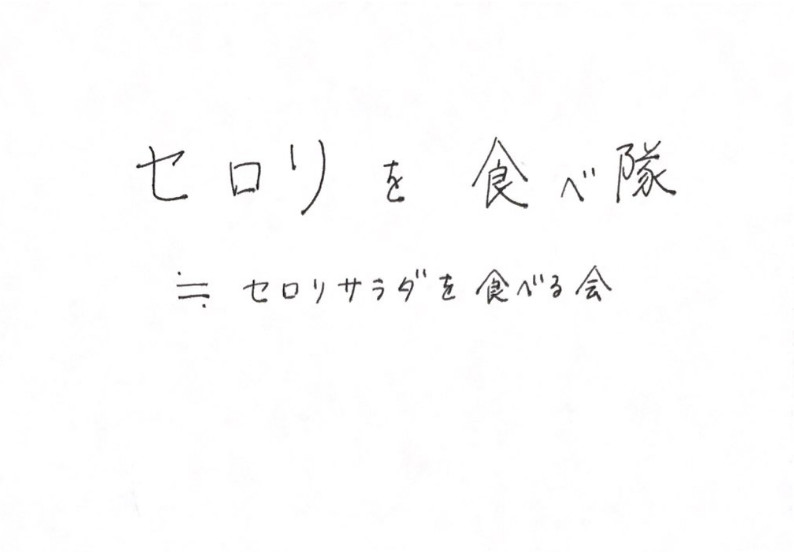 セロリを食べ隊
≒ セロリサラダを食べる会